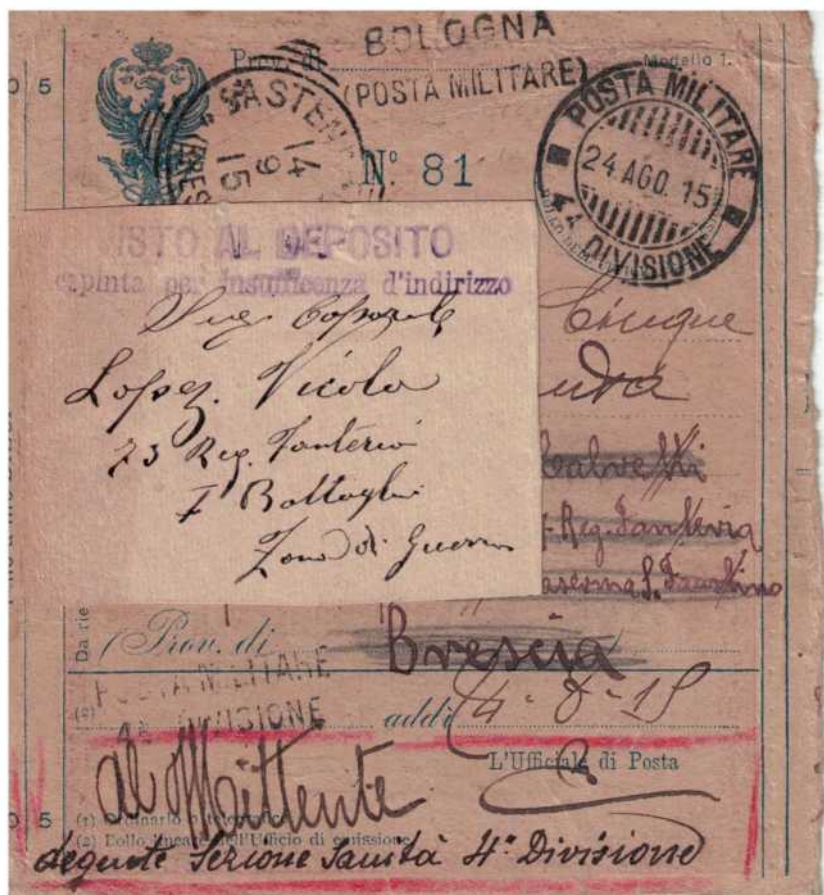 BOLOGNA
Prov. di
(POSTA MILITARE)
Modello 1.
POSTA MILITARE
24 AGO. 15
4ª DIVISIONE
14
9
15
Nº 81
0 5
ISTO AL DEPOSITO
espinta per insufficenza d'indirizzo
Cinque
Lopez. Nicola
73 Reg. Fanteria
I Battagli
Zona di Guerra
Calvetti
Reg. Fanteria
Caserma S. Faustino
Da rie
(Prov. di Brescia)
POSTA MILITARE
4ª DIVISIONE
addì
L'Ufficiale di Posta
al Mittente
(1) Ordinario o telegrafico
(2) Bollo lineare dell'Ufficio di emissione
0 5
degente Sezione Sanità 4ª Divisione